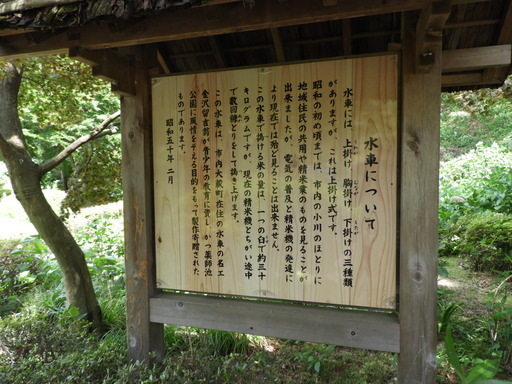 水車について
水車には、上掛け、胸掛け、下掛けの三種類
がありますが、これは上掛け式です。
昭和の初め頃までは、市内の小川のほとりに
地域住民の共用や精米業のものを見ることが
出来ましたが、電気の普及と精米機の発達に
より現在では殆ど見ることは出来ません。
この水車で搗ける米の量は、一つの臼で約三十
キログラムですが、現在の精米機とちがい途中
で数回糠とりをして搗き上げます。
この水車は、市内大蔵町在住の水車の名工
金沢留吉翁が青少年の教育に資し、かつ薬師池
公園に風情をそえる目的をもって製作寄贈された
ものであります。
昭和五十年二月